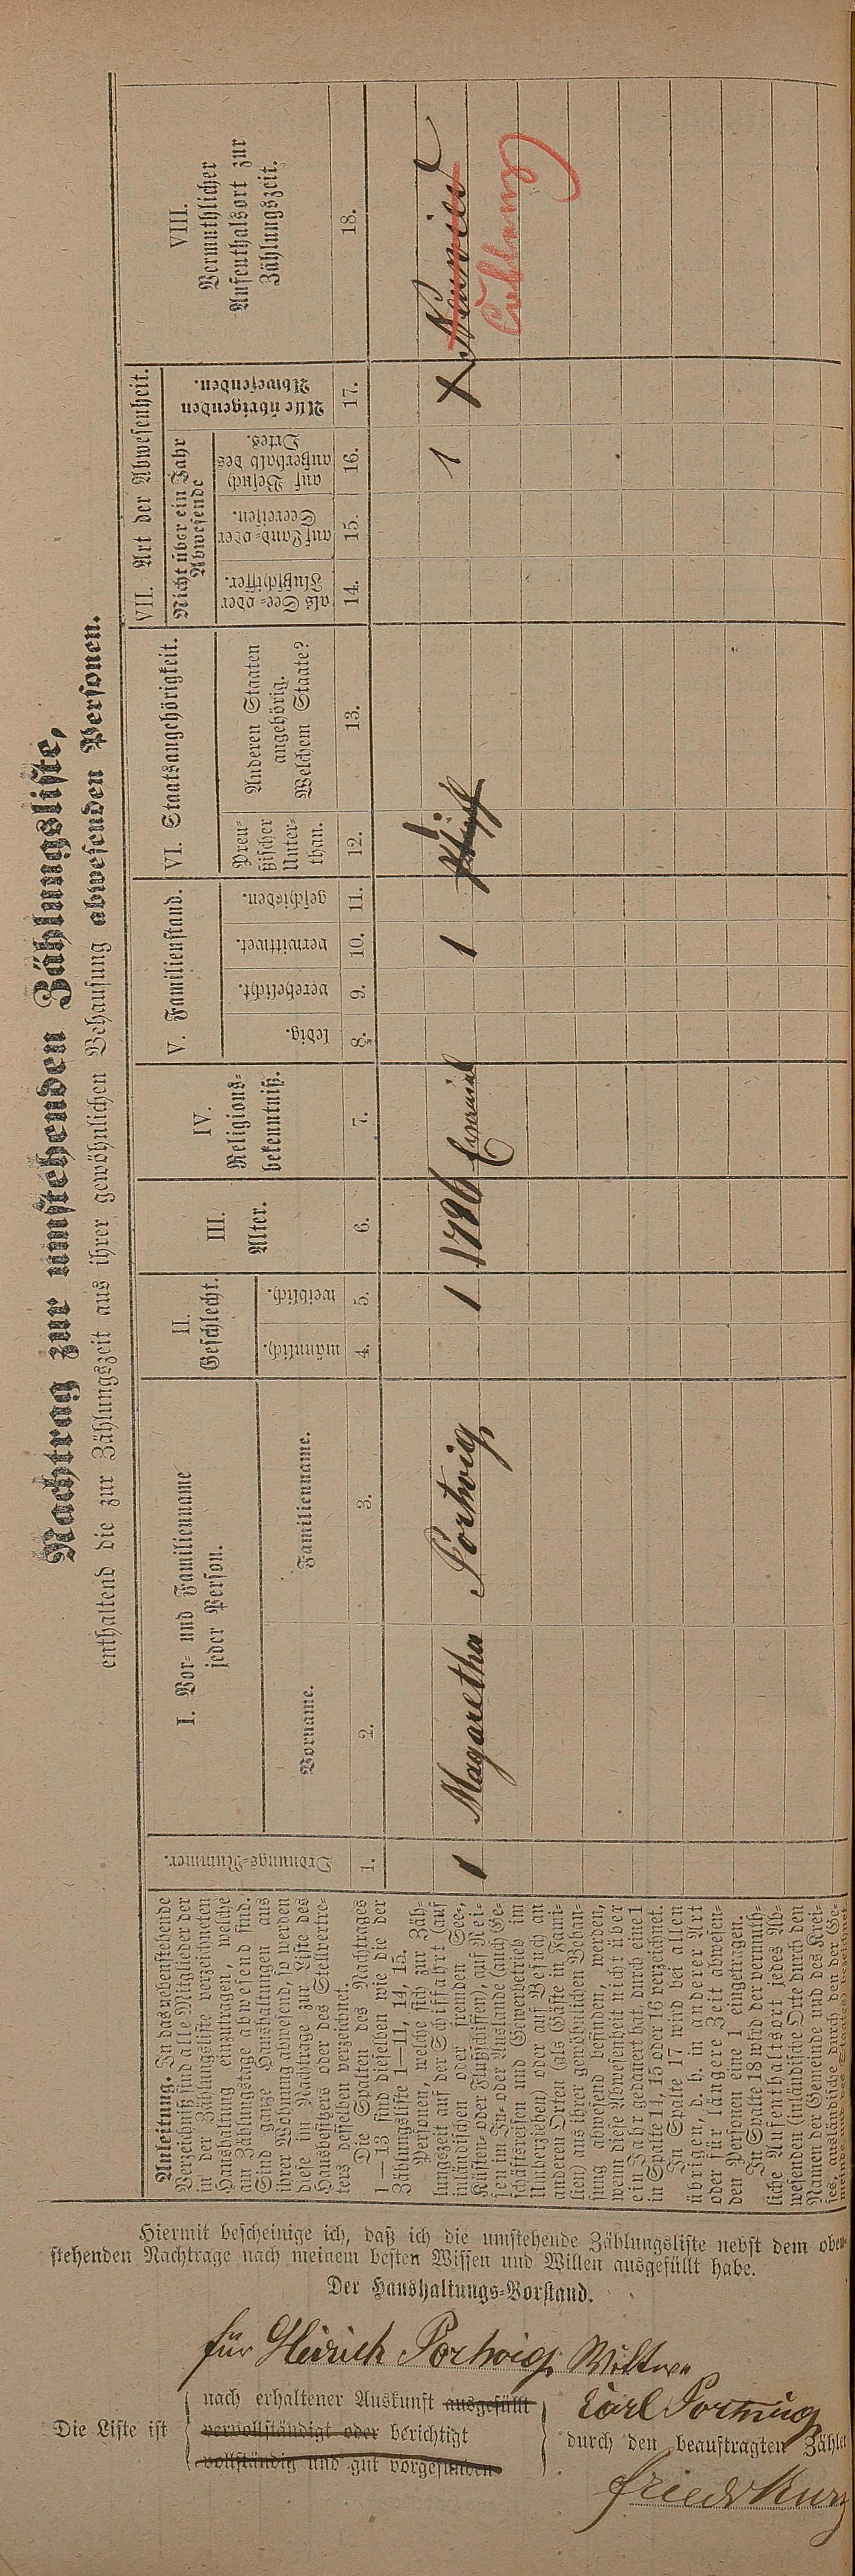 Nachtrag zur umstehenden Zählungsliste,
enthaltend die zur Zählungszeit aus ihrer gewöhnlichen Behausung abwesenden Personen.
Anleitung. In das nebenstehende
Verzeichniß sind alle Mitglieder der
in der Zählungsliste verzeichneten
Haushaltung einzutragen, welche
am Zählungstage abwesend sind.
Sind ganze Haushaltungen aus
ihrer Wohnung abwesend, so werden
diese im Nachtrage zur Liste des
Hausbesitzers oder des Stellvertre-
ters desselben verzeichnet.
Die Spalten des Nachtrages
1—13 sind dieselben wie die der
Zählungsliste 1—11, 14, 15.
Personen, welche sich zur Zäh-
lungszeit auf der Schifffahrt (auf
inländischen oder fremden See-,
Küsten- oder Flußschiffen), auf Rei-
sen im In- oder Auslande (auch Ge-
schäftsreisen und Gewerbetrieb im
Umherziehen) oder auf Besuch an
anderen Orten (als Gäste in Fami-
lien) aus ihrer gewöhnlichen Behau-
sung abwesend befinden, werden,
wenn diese Abwesenheit nicht über
ein Jahr gedauert hat, durch eine 1
in Spalte 14, 15 oder 16 verzeichnet.
In Spalte 17 wird bei allen
übrigen, d. h. in anderer Art
oder für längere Zeit abwesen-
den Personen eine 1 eingetragen.
In Spalte 18 wird der vermuth-
liche Aufenthaltsort jedes Ab-
wesenden (inländische Orte durch den
Namen der Gemeinde und des Krei-
ses, ausländische durch den der Ge-
meinde und des Staates) bezeichnet.
Ordnungs-Nummer.
1.
I. Vor- und Familienname
jeder Person.
Vorname.
2.
Familienname.
3.
II.
Geschlecht.
männlich.
4.
weiblich.
5.
III.
Alter.
6.
IV.
Religions-
bekenntniß.
7.
V. Familienstand.
ledig.
8.
verehelicht.
9.
verwittwet.
10.
geschieden.
11.
VI. Staatsangehörigkeit.
Preu-
ßischer
Unter-
than.
12.
Anderen Staaten
angehörig.
Welchem Staate?
13.
VII. Art der Abwesenheit.
Nicht über ein Jahr
Abwesende
als See- oder
Flußschiffer.
14.
auf Land- oder
Seereisen.
15.
auf Besuch
außerhalb des
Ortes.
16.
Alle übrigen
Abwesenden.
17.
VIII.
Vermuthlicher
Aufenthalsort zur
Zählungszeit.
18.
1 Magaretha Portwig 1 1796 1 1 1 Neuwied
Hiermit bescheinige ich, daß ich die umstehende Zählungsliste nebst dem oben-
stehenden Nachtrage nach meinem besten Wissen und Willen ausgefüllt habe.
Der Haushaltungs-Vorstand.
für Heinrich Portwig Wittwe
Carl Portwig
Die Liste ist
nach erhaltener Auskunft ausgefüllt
vervollständigt oder berichtigt
vollständig und gut vorgefunden
durch den beauftragten Zähler
Friedr Kurz